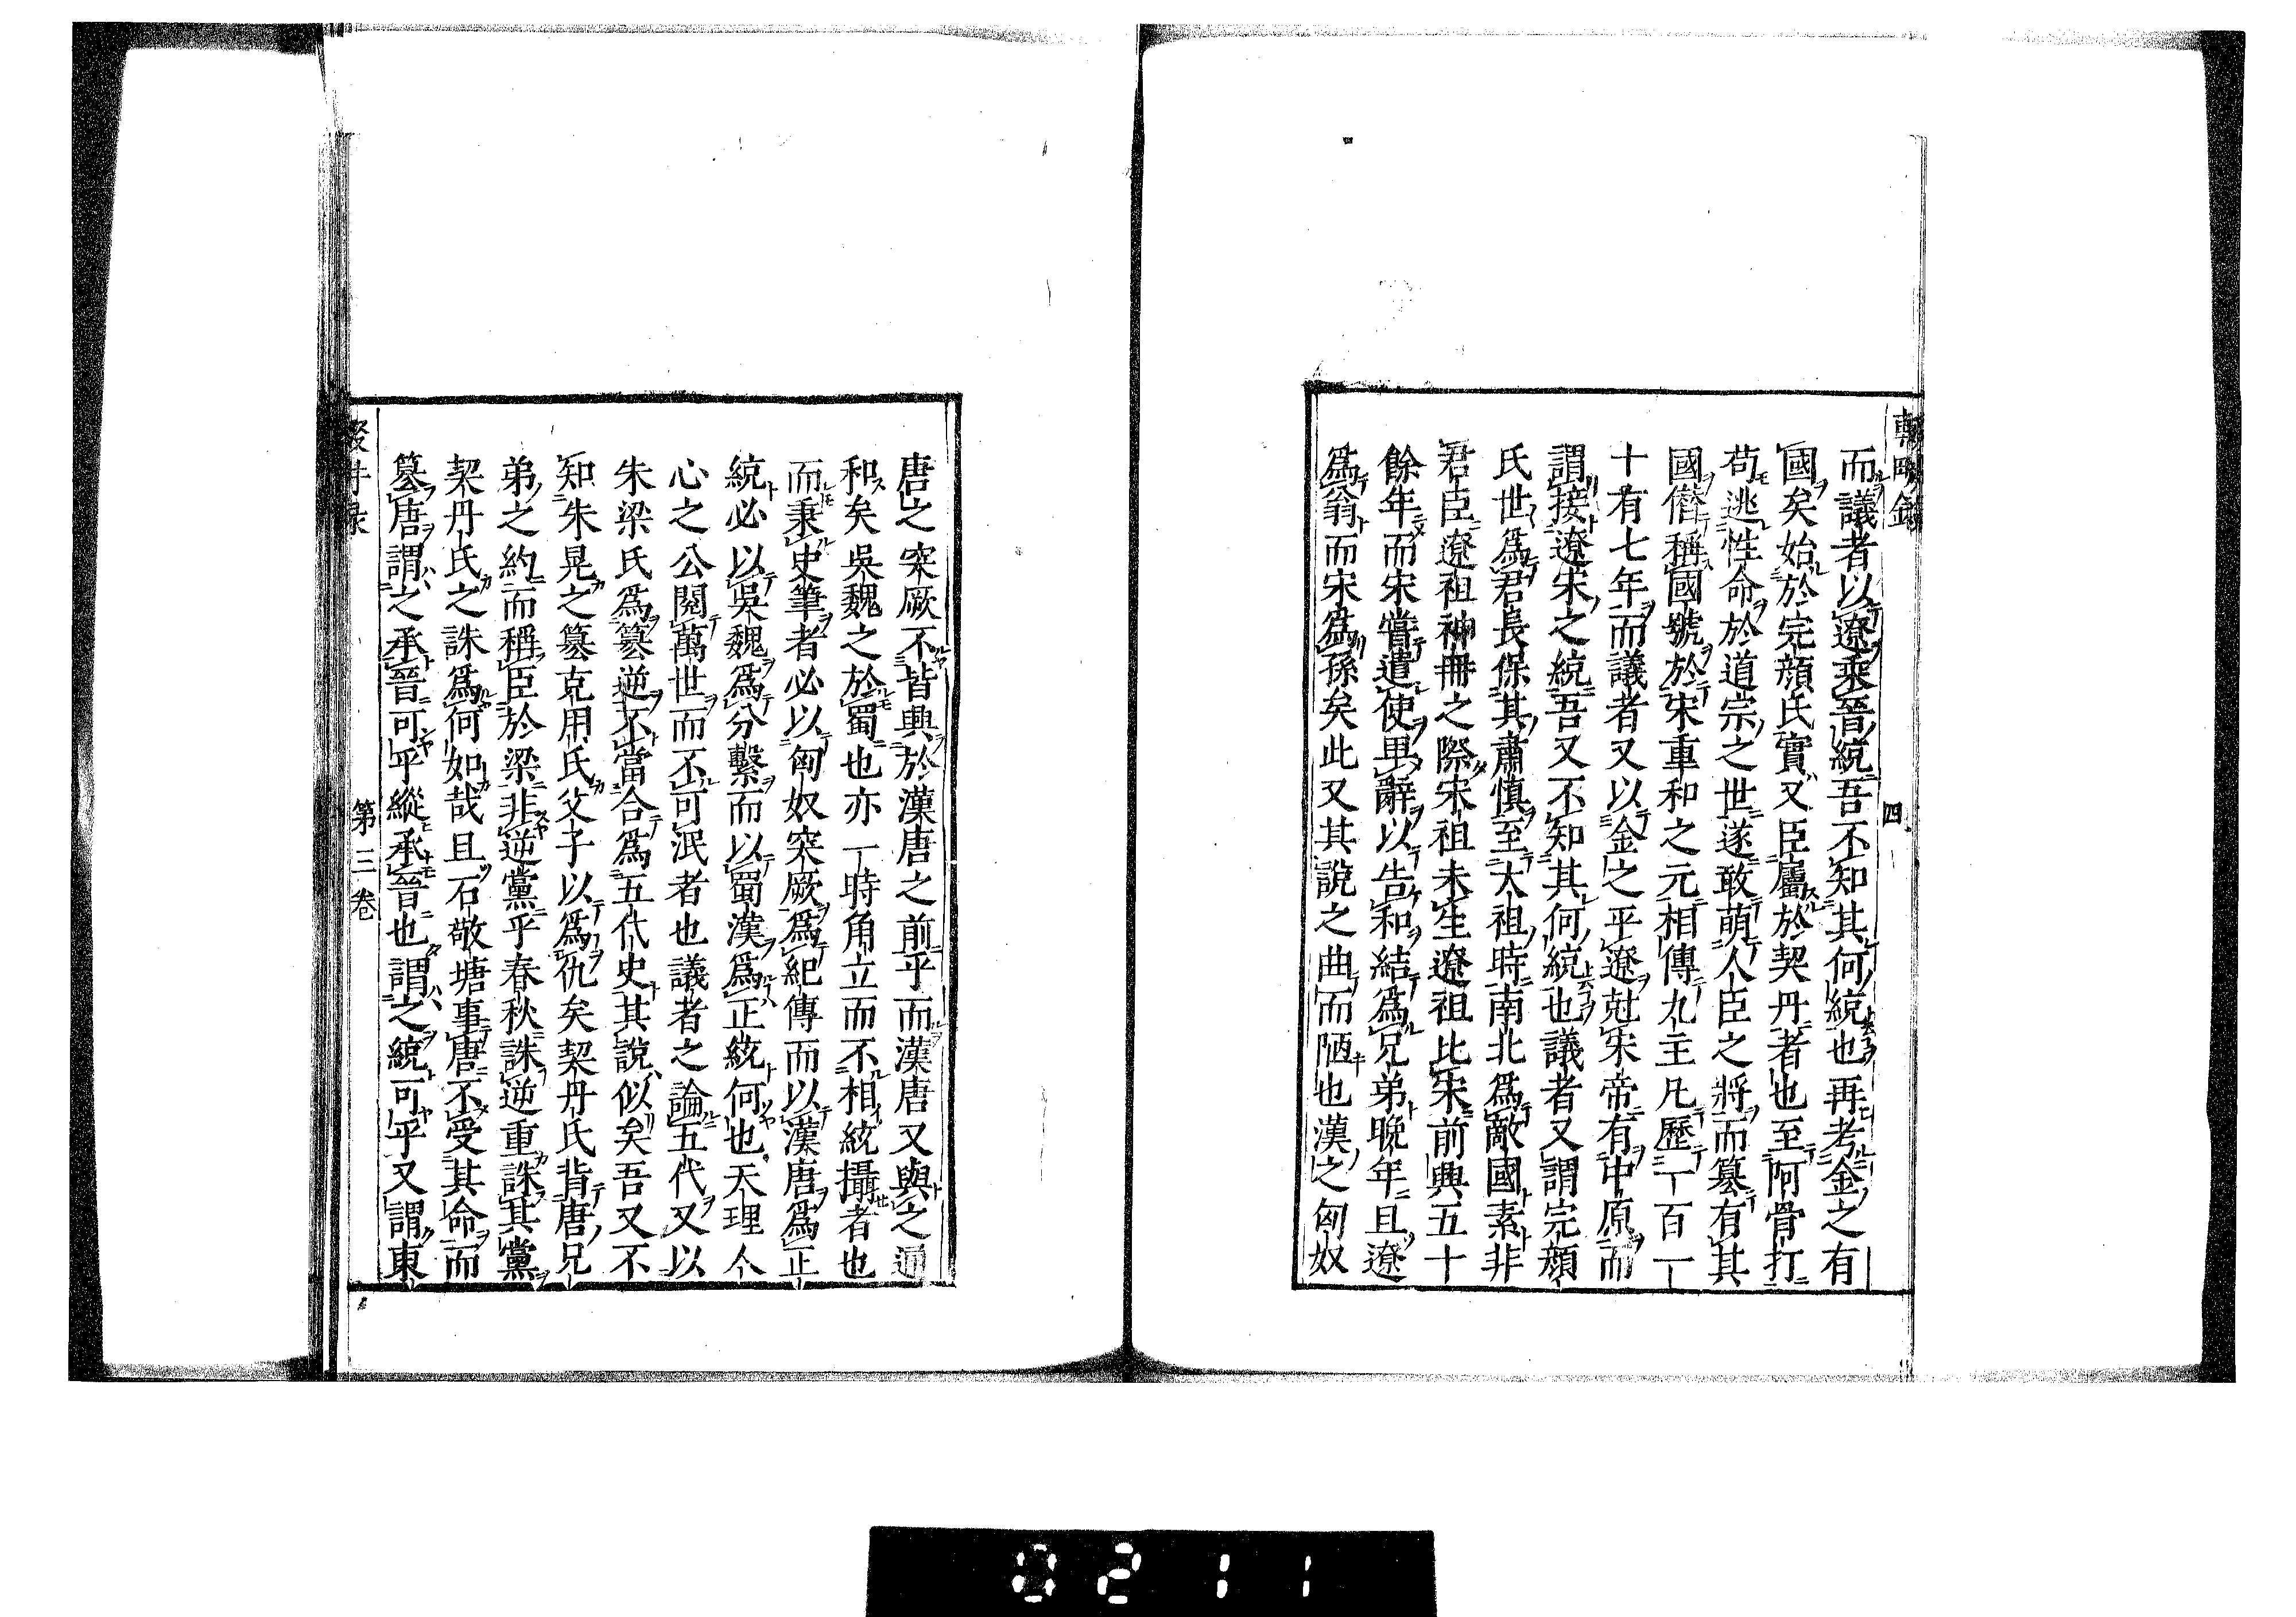 而議者以遼乘晉統吾不知其何統也再考金之有
國矣始於完顏氏實又臣屬於契丹者也至阿骨打
苟逃性命於道宗之世遂敢萌人臣之將而簒有其
國僣稱國號於宋重和之元相傳九主凡歷一百一
十有七年而議者又以金之平遼尅宋帝有中原而
謂接遼宋之統吾又不知其何統也議者又謂完顏
氏世爲君長保其肅慎至大祖時南北爲敵國素非
君臣遼祖神冊之際宋祖未生遼祖比宋前興五十
餘年而宋嘗遣使畢辭以告和結爲兄弟晚年且遼
爲翁而宋爲孫矣此又其說之曲而陋也漢之匈奴
四
唐之突厥不皆興於漢唐之前乎而漢唐又與之通
和矣吳魏之於蜀也亦一時角立而不相統攝者也
而秉史筆者必以匈奴突厥爲紀傳而以漢唐爲正
統必以吳魏爲分繫而以蜀漢爲正統何也天理人
心之公閱萬世而不可泯者也議者之論五代又以
朱梁氏爲簒逆不當合爲五代史其說似矣吾又不
知朱晃之簒克用氏父子以爲仇矣契丹氏背唐兄
弟之約而稱臣於梁非逆黨乎春秋誅逆重誅其黨
契丹氏之誅爲何如哉且石敬塘事唐不受其命而
簒唐謂之承晉可乎縱承晉也謂之統可乎又謂東
第三卷
0211